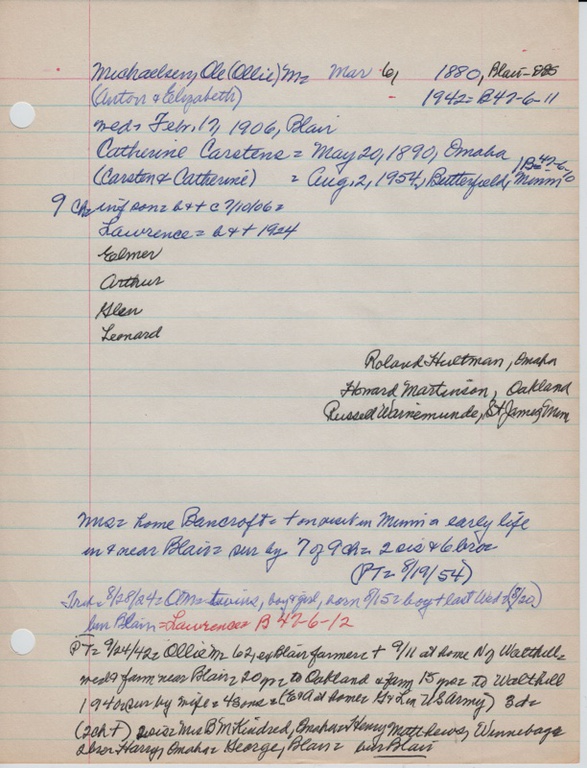 Michaelsen, Ole (Ollie) M= Mar 6, 1880, Blair-
(Anton & Elizabeth) 1942= B47-6-11
wed= Febr. 17, 1906, Blair
Catherine Carstens = May 20, 1890, Omaha
(Carsten & Catherine) = Aug. 2, 1954, Butterfield, Minn B=47-6-10
9 Ch= inf son= b & + c 7/10/06=
Lawrence= b & + 1924
Elmer
Arthur
Glen
Leonard
Roland Hultman, Omaha
Howard Martinson, Oakland
Russell Warnemunde, St James, Minn
Mrs= home Bancroft= + on visit in Minn= early life
in & near Blair= sur by 7 of 9 ch= 2 sis & 6 bro=
(PT= 8/19/54)
Trib= 8/28/24= OM= twins, boy & girl, born 8/15= boy + last Wed= (8/20)
bur Blair= Lawrence= B 47-6-12
PT= 9/24/42= Ollie M= 62, ex Blair farmer= + 9/11 at home N of Walthill=
wed & farm near Blair= 20 yr= to Oakland & farm 15 yrs= to Walthill
1940= sur by wife= 4 sons= (E & A at home= G & L in US Army) 3 d=
(2 ch +) 2 sis= Mrs B M Kindred, Omaha= Henry Matthews, Winnebago
2 bro= Harry, Omaha= George, Blair= bur Blair